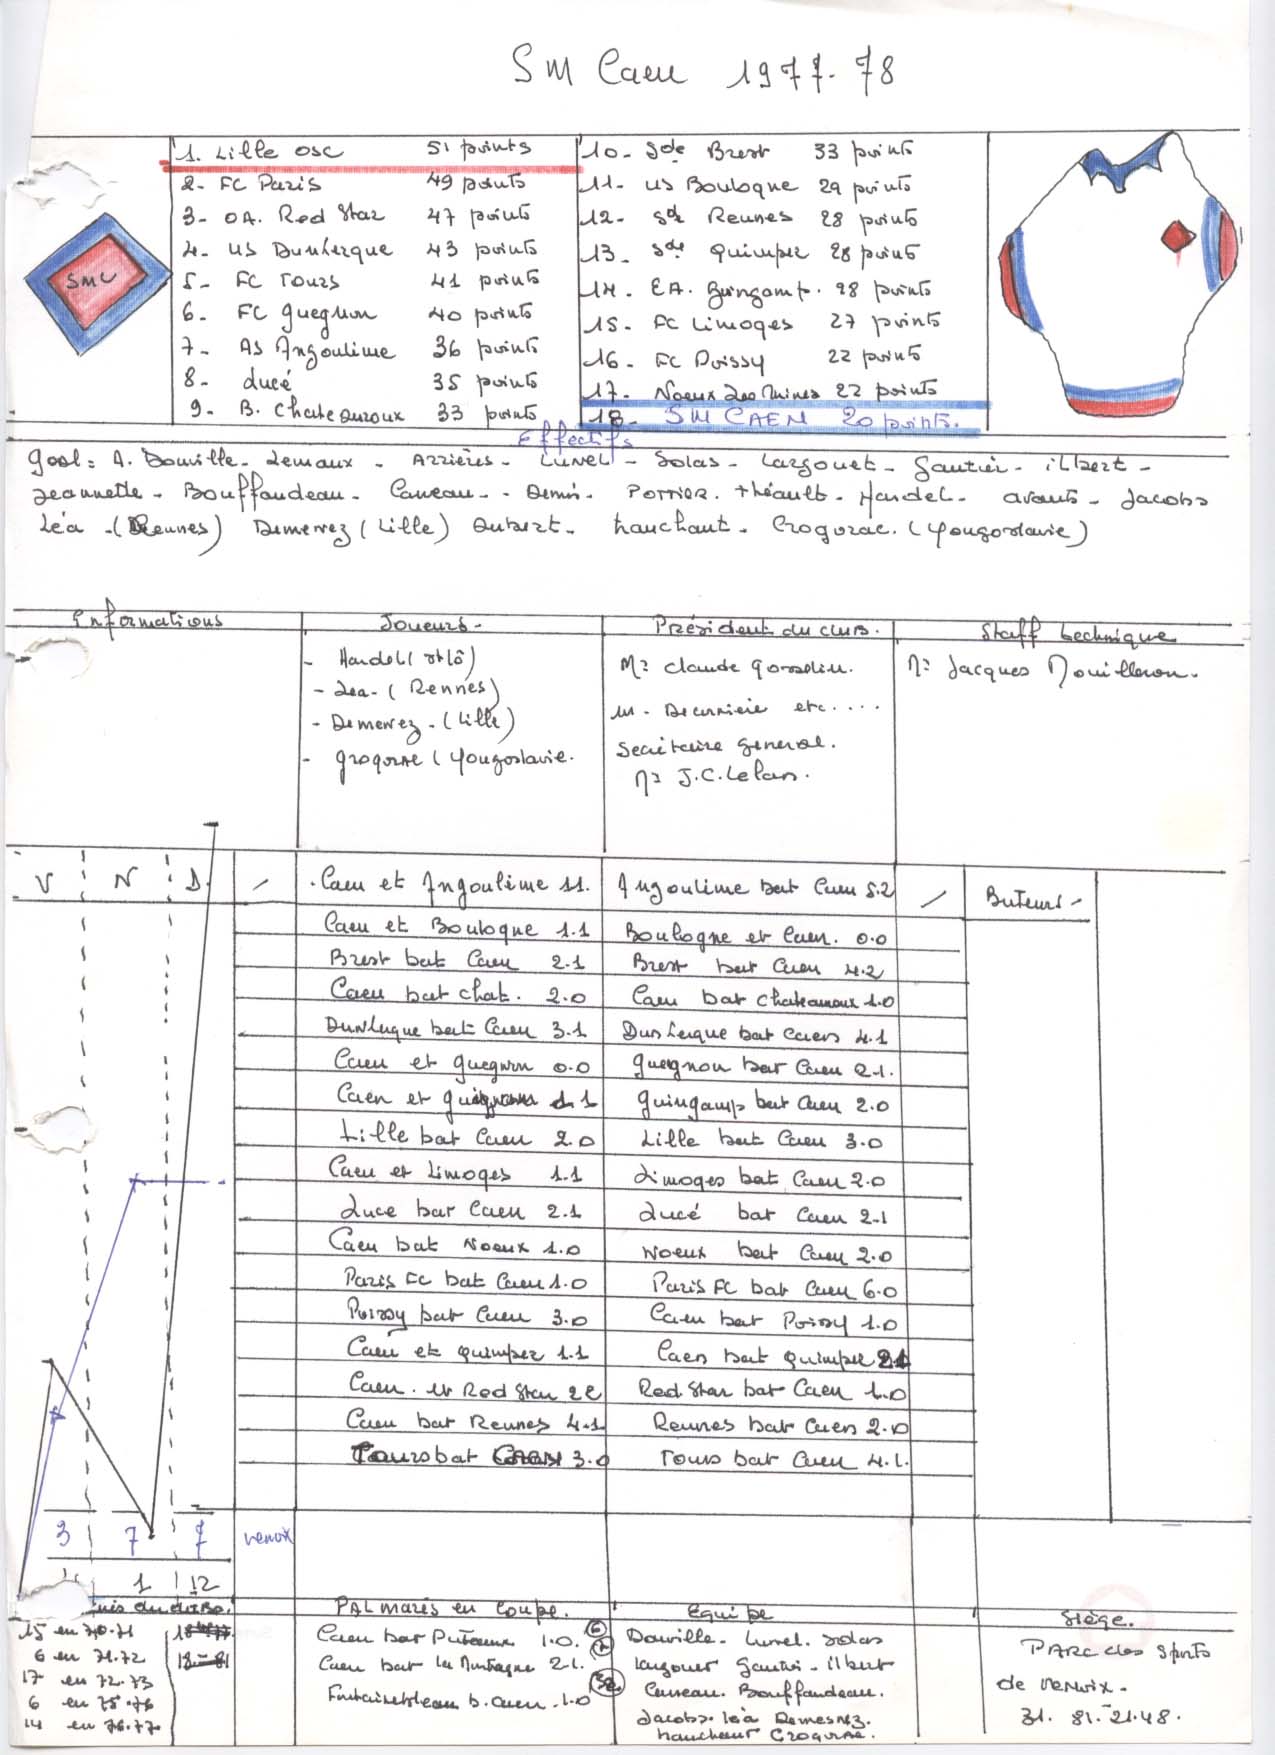 SM Caen 1977-78
SMC
1. Lille OSC 51 points
2- FC Paris 49 points
3- OA. Red Star 47 points
4- US Dunkerque 43 points
5- FC Tours 41 points
6- FC Guegnon 40 points
7- AS Angoulime 36 points
8- Lucé 35 points
9- B. Chateauroux 33 points
10- Sde Brest 33 points
11- US Boulogne 29 points
12- Sde Rennes 28 points
13- Sde Quimper 28 points
14- EA. Guingamp. 28 points
15- FC Limoges 27 points
16- FC Poissy 22 points
17- Noeux les Mines 22 points
18- SM CAEN 20 points.
Effectifs
Goal: A. Douville- Lemaux - Arrières- LUNEL- Solas- Largouet- Gautier- ilbert-
Jeannette- Bouffandeau- Caneau- - Demis- Pottier. Théault- Handel- avants- Jacobs
Léa -(Rennes) Demerrez (Lille) Aubert- hauchant- Crogorac. (Yougoslavie)
Informations
Joueurs-
- Handel (St Lô)
- Lea- (Rennes)
- Demerrez- (Lille)
- Grogorac (Yougoslavie.
Président du club.
Mr Claude Gosselin.
M- etc....
Secrétaire general.
Mr J.C. Lelan.
Staff technique
Mr Jacques Mouilleron.
V N D
Caen et Angoulime 1 1. Angoulime bat Caen 5.2
Caen et Boulogne 1.1 Boulogne et Caen. 0.0
Brest bat Caen 2.1 Brest bat Caen 4.2
Caen bat Chat. 2.0 Caen bat Chateauroux 1.0
Dunkerque bat Caen 3.1 Dunkerque bat Caen 4.1
Caen et Guegnon 0.0 Guegnon bat Caen 2.1.
Caen et 1 Guingamp bat Caen 2.0
Lille bat Caen 2.0 Lille bat Caen 3.0
Caen et Limoges 1.1 Limoges bat Caen 2.0
Luce bat Caen 2.1 Lucé bat Caen 2.1
Caen bat Noeux 1.0 Noeux bat Caen 2.0
Paris FC bat Caen 1.0 Paris FC bat Caen 6.0
Poissy bat Caen 3.0 Caen bat Poissy 1.0
Caen et Quimper 1.1 Caen bat Quimper 2.1
Caen. et Red Star 2 2 Red Star bat Caen 1.0
Caen bat Rennes 4.1 Rennes bat Caen 2.0
Tours bat Caen 3.0 Tours bat Caen 4.1.
Buteurs-
3 7 7 Venoix
1 12
15 en 70.71
6 en 71.72
17 en 72.73
6 en 75.76
14 en 76.77
PALmarès en Coupe.
Caen bat Puteaux 1.0. 6
Caen bat la Montagne 2.1. 7
Fontainebleau b. Caen 1.0 32
Equipe
Douville- Lunel. Solas
Largouet Gautier- ilbert
Caneau. Bouffandeau.
Jacobs. Léa Demesrez.
hancheur Crogorac.
Siège.
PARC des Sports
de Venoix-
31. 81-21.48.